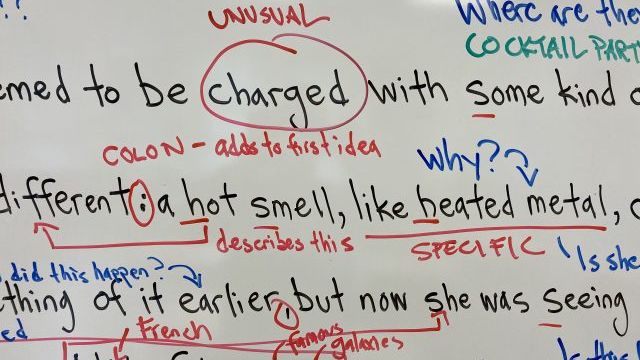 ??
UNUSUAL
Where are the
COCKTAIL PART
emed to be charged with some kind o
COLON - adds to first idea
Why?
different: a hot smell, like heated metal, c
describes this
SPECIFIC
Is she
did this happen?
thing of it earlier, but now she was seeing
ed
French
famous
galaxies